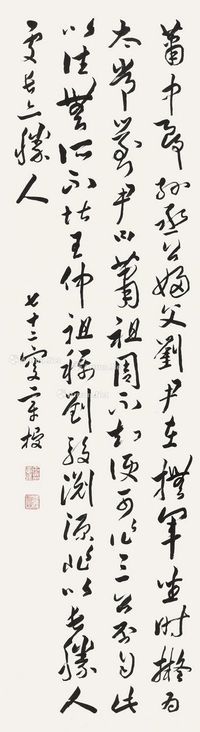 蕭中郎孫丞公婦父劉尹在撫軍坐時擬為
太常劉尹云蕭祖周不知便可作三公不自此
以往無所不堪王仲祖稱殷淵源非以長勝人
處長亦勝人
七十二叟